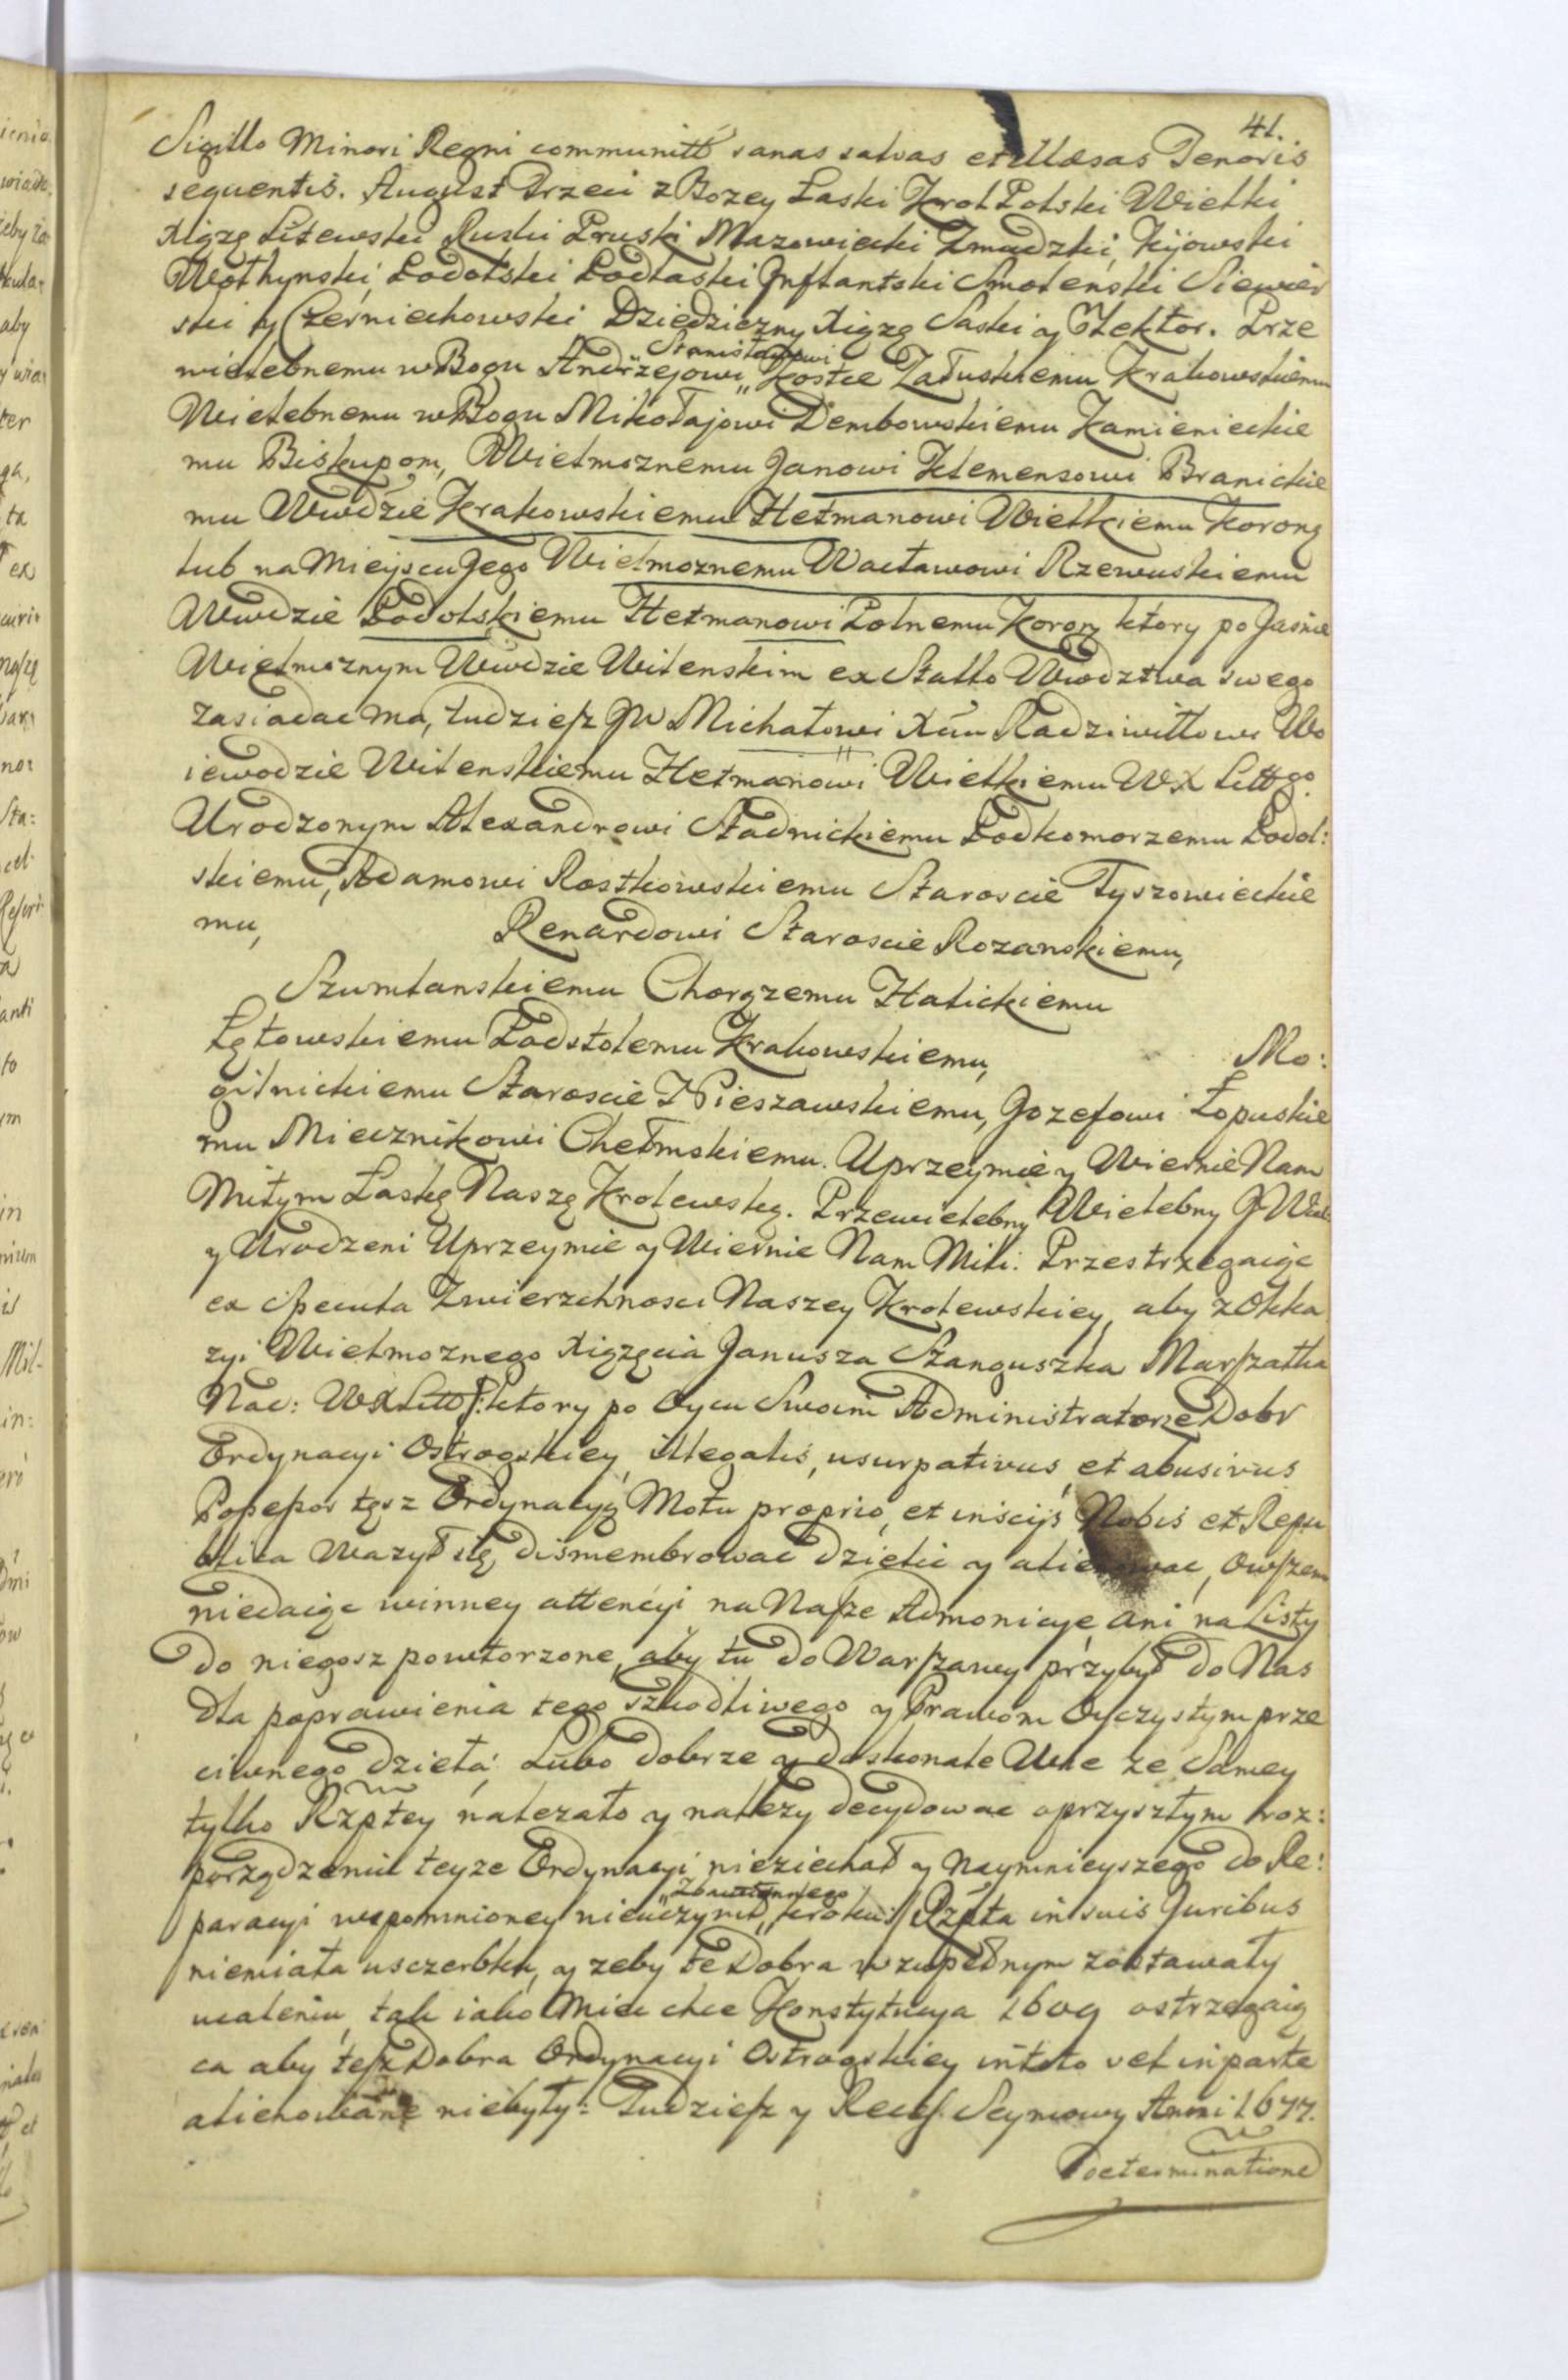 41.
Sigillo Minori Regni communitt sanas salvas et illæsas Tenoris
sequentis. August Trzeci z Bozey Łaski Krol Polski Wielki
Xiąze Litewski Ruski Pruski Mazowiecki Zmudzki, Kijowski
Wołhynski, Podolski Podlaski Inflantski Smolenski Siewier
ski y Czerniechowski Dziedziczny Xiąze Saski y Elektor. Prze
wielebnemu w Bogu Andrzejowi „ Stanisławowi Kostce Załuskiemu Krakowskiemu
Wielebnemu w Bogu Mikołajowi Dembowskiemu Kamienieckie
mu Biskupom, Wielmoznemu Janowi Klemensowi Branickie
mu Wwdzie Krakowskiemu Hetmanowi Wielkiemu Korong
lub na Mieyscu Jego Wielmoznemu Wacławowi Rzewuskiemu
Wwdzie Podolskiemu Hetmanowi Polnemu Korong ktory po Jasnie
Wielmoznym Wwdzie Wilenskim ex Stallo Wwdztwa swego
zasiadac ma, tudziesz JW Michałowi Xciu Radziwiłłowi Wo
iewodzie Wilenskiemu Hetmanowi Wielkiemu WX Litt go.
Urodzonym Alexandrowi Stadnickiemu Podkomorzemu Podol:
skiemu, Adamowi Rostkowskiemu Staroscie Tyszowieckie
mu, Renardowi Staroscie Rozanskiemu,
Szumlanskiemu Chorązemu Halickiemu
Łętowskiemu Podstolemu Krakowskiemu, Mo:
gilnickiemu Staroscie Nieszawskiemu, Jozefowi Łopuskie
mu Miecznikowi Chełmskiemu. Uprzeymie y Wiernie Nam
Miłym Łaskę Naszę Krolewskę. Przewielebny Wielebny JWiel:
y Urodzeni Uprzeymie y Wiernie Nam Mili. Przestrzegaiąc
ex specula Zwierzchnosci Naszey Krolewskiey, aby z Okka
zyi Wielmoznego Xiązęcia Janusza Sanguszka Marszałka
Nad: WX Litt /: ktory po Oycu Swoim Administratorze Dobr
Ordynacyi Ostrogskiey, illegalis, usurpativus, et abusivus
Possessor tęsz Ordynacyą Motu proprio, et insciis Nobis et Repu
blica Wazył się, dismembrowac dzielic y alienowac, Owszem
niedaiąc winney attencyi na Nasze Admonicye ani na Listy
do niegosz powtorzone, aby tu do Warszawy przybył do Nas
dla poprawienia tego szkodliwego y Prawom Oyczystym prze
ciwnego dzieła: Lubo dobrze y doskonale Wie ze Samey
tylko Rzptey nalezało y nalezy decydowac o przyszłym roz:
porządzeniu teyze Ordynacyi nieziechał y Naymnieyszego do Re:
paracyi wspomnioney nieuczynił „ Zbawiennego kroku :/ Rzpta in suis Juribus
niemiała usczerbku, y zeby te Dobra w zupełnym zostawały
ucaleniu, tak iako Miec chce Konstytucya 1609 ostrzegaią
ca aby tesz Dobra Ordynacyi Ostrogskiey in toto vel in parte
alienowane niebyły: Tudziesz y Recess. Seymowy Anni 1677.
Determinatione